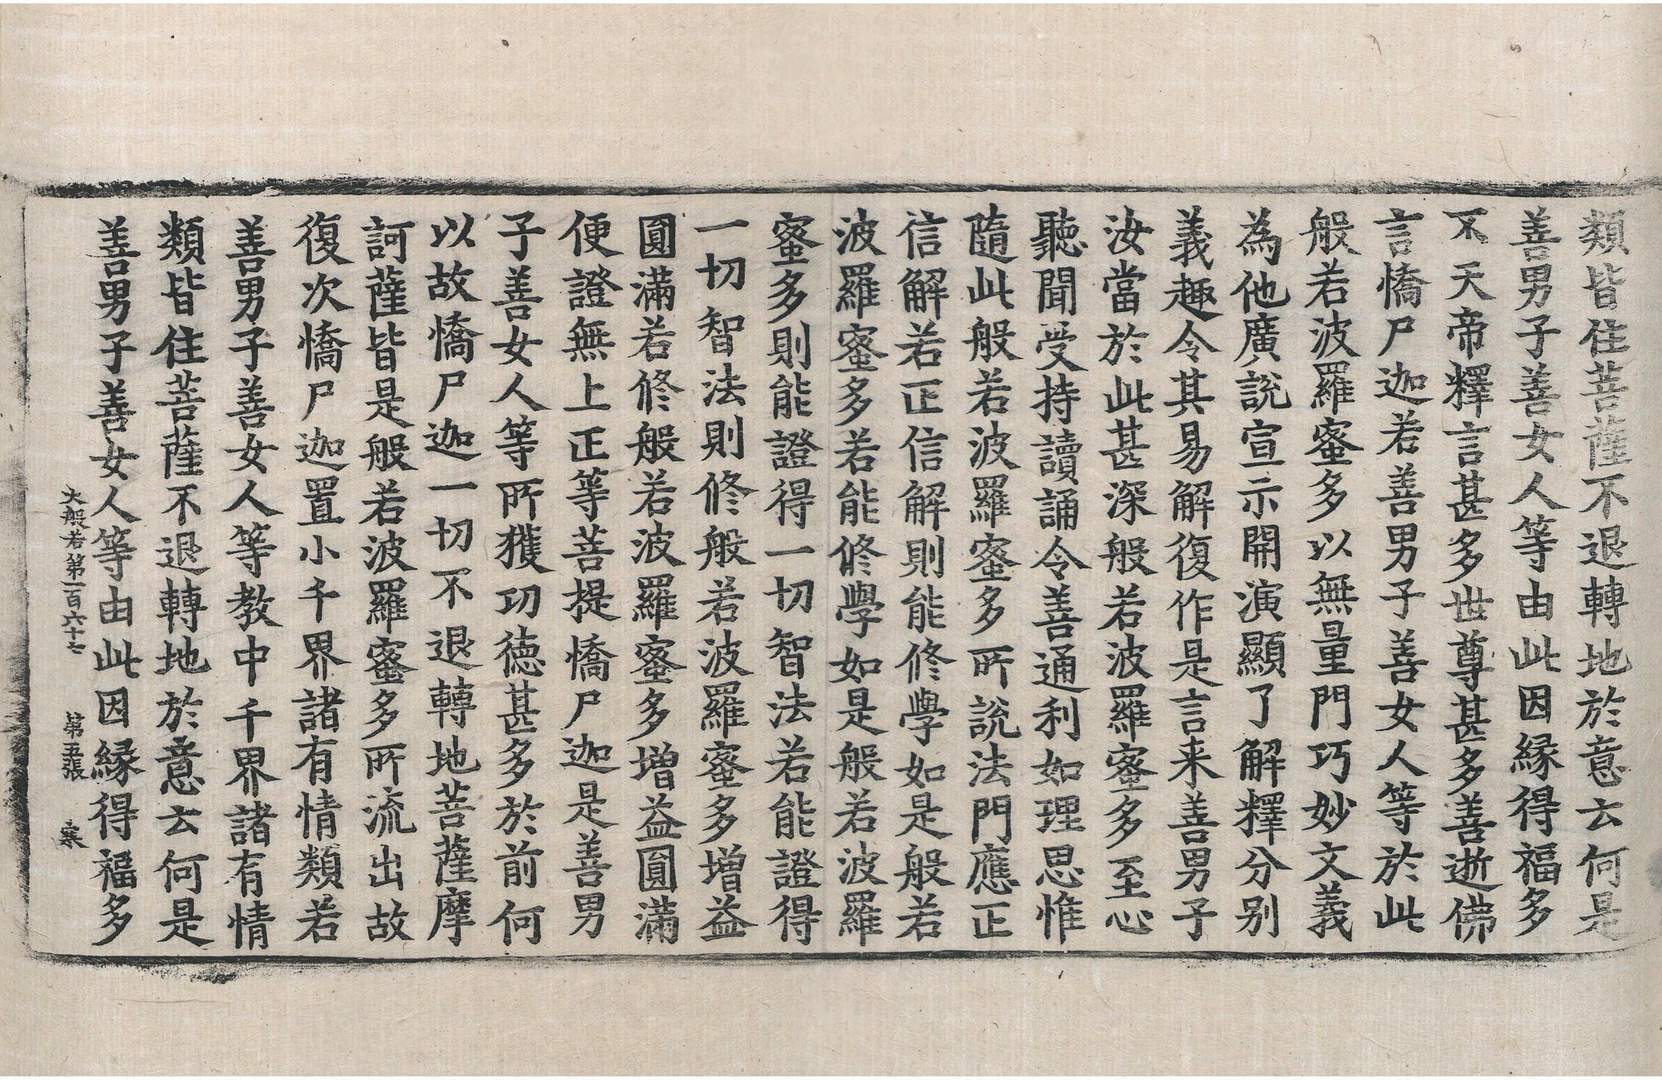 類皆住菩薩不退轉地於意云何是
善男子善女人等由此因緣得福多
不天帝釋言甚多世尊甚多善逝佛
言憍尸迦若善男子善女人等於此
般若波羅蜜多以無量門巧妙文義
為他廣說宣示開演顯了解釋分別
義趣令其易解復作是言来善男子
汝當於此甚深般若波羅蜜多至心
聽聞受持讀誦令善通利如理思惟
隨此般若波羅蜜多所說法門應正
信解若正信解則能修學如是般若
波羅蜜多若能修學如是般若波羅
蜜多則能證得一切智法若能證得
一切智法則修般若波羅蜜多增益
圓滿若修般若波羅蜜多增益圓滿
便證無上正等菩提憍尸迦是善男
子善女人等所獲功德甚多於前何
以故憍尸迦一切不退轉地菩薩摩
訶薩皆是般若波羅蜜多所流出故
復次憍尸迦置小千界諸有情類若
善男子善女人等教中千界諸有情
類皆住菩薩不退轉地於意云何是
善男子善女人等由此因緣得福多
大般若第一百六十七 第五張